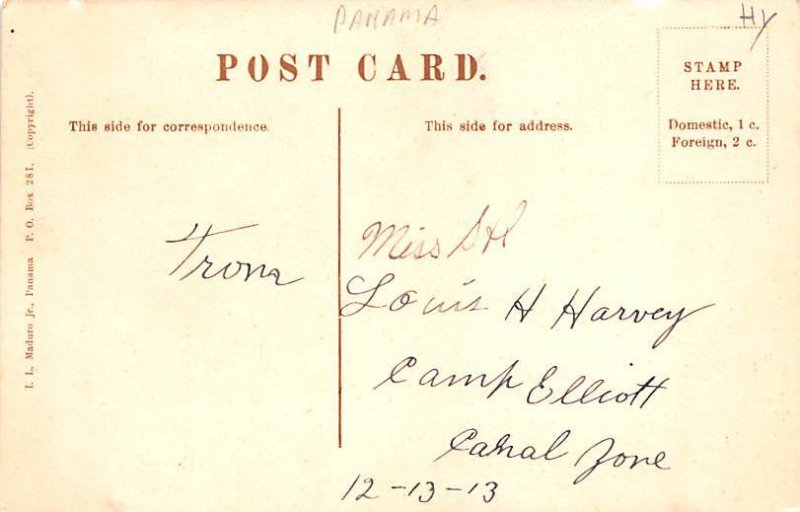 PANAMA
HY
POST CARD.
STAMP
HERE.
Domestic, 1 c.
Foreign, 2 c.
This side for correspondence.
This side for address.
I. L. Maduro jr., Panama P. O. Box 281. (Copyright).
From
Miss
Louis H Harvey
Camp Elliott
Canal Zone
12-13-13